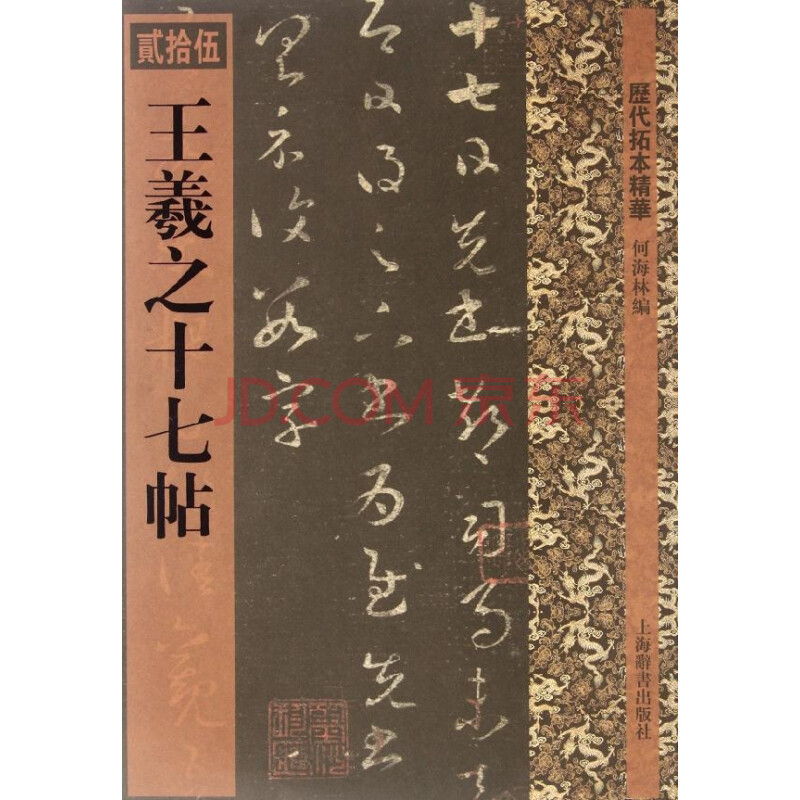 貳拾伍
王羲之十七帖
歷代拓本精華
何海林編
上海辭書出版社
十七日先書郗司馬未去
即日得足下書為慰先書
以具示復數字
JD.COM 京东